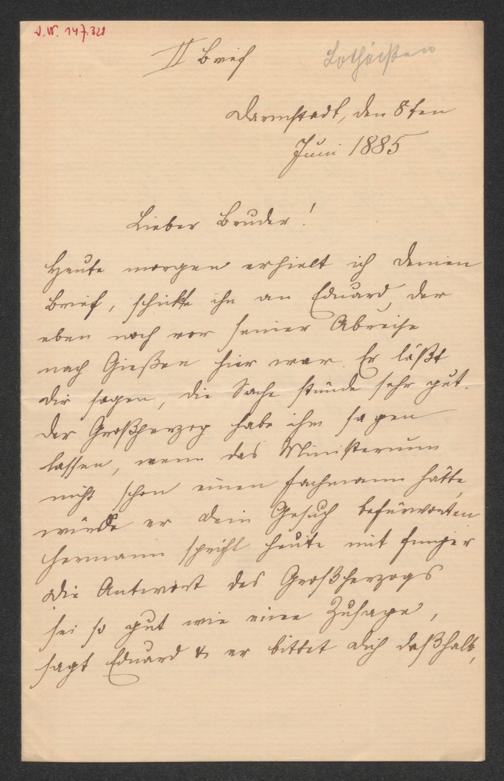 J.N. 147.321
II Brief
Lothóißen
Darmstadt, den 8ten
Juni 1885
Lieber Bruder!
Heute morgen erhielt ich deinen
Brief, schickte ihn an Eduard, der
eben noch vor seiner Abreise
nach Gießen hier war. Er läßt
dir sagen, die Sache stünde sehr gut.
Der Großherzog habe ihm sagen
lassen, wenn das Ministerium
nicht schon einen Fachmann hätte,
würde er dein Gesuch befürworten
Hermann spricht heute mit Finger
Die Antwort des Großherzogs
sei so gut wie eine Zusage,
sagt Eduard & er bittet dich deßhalb,